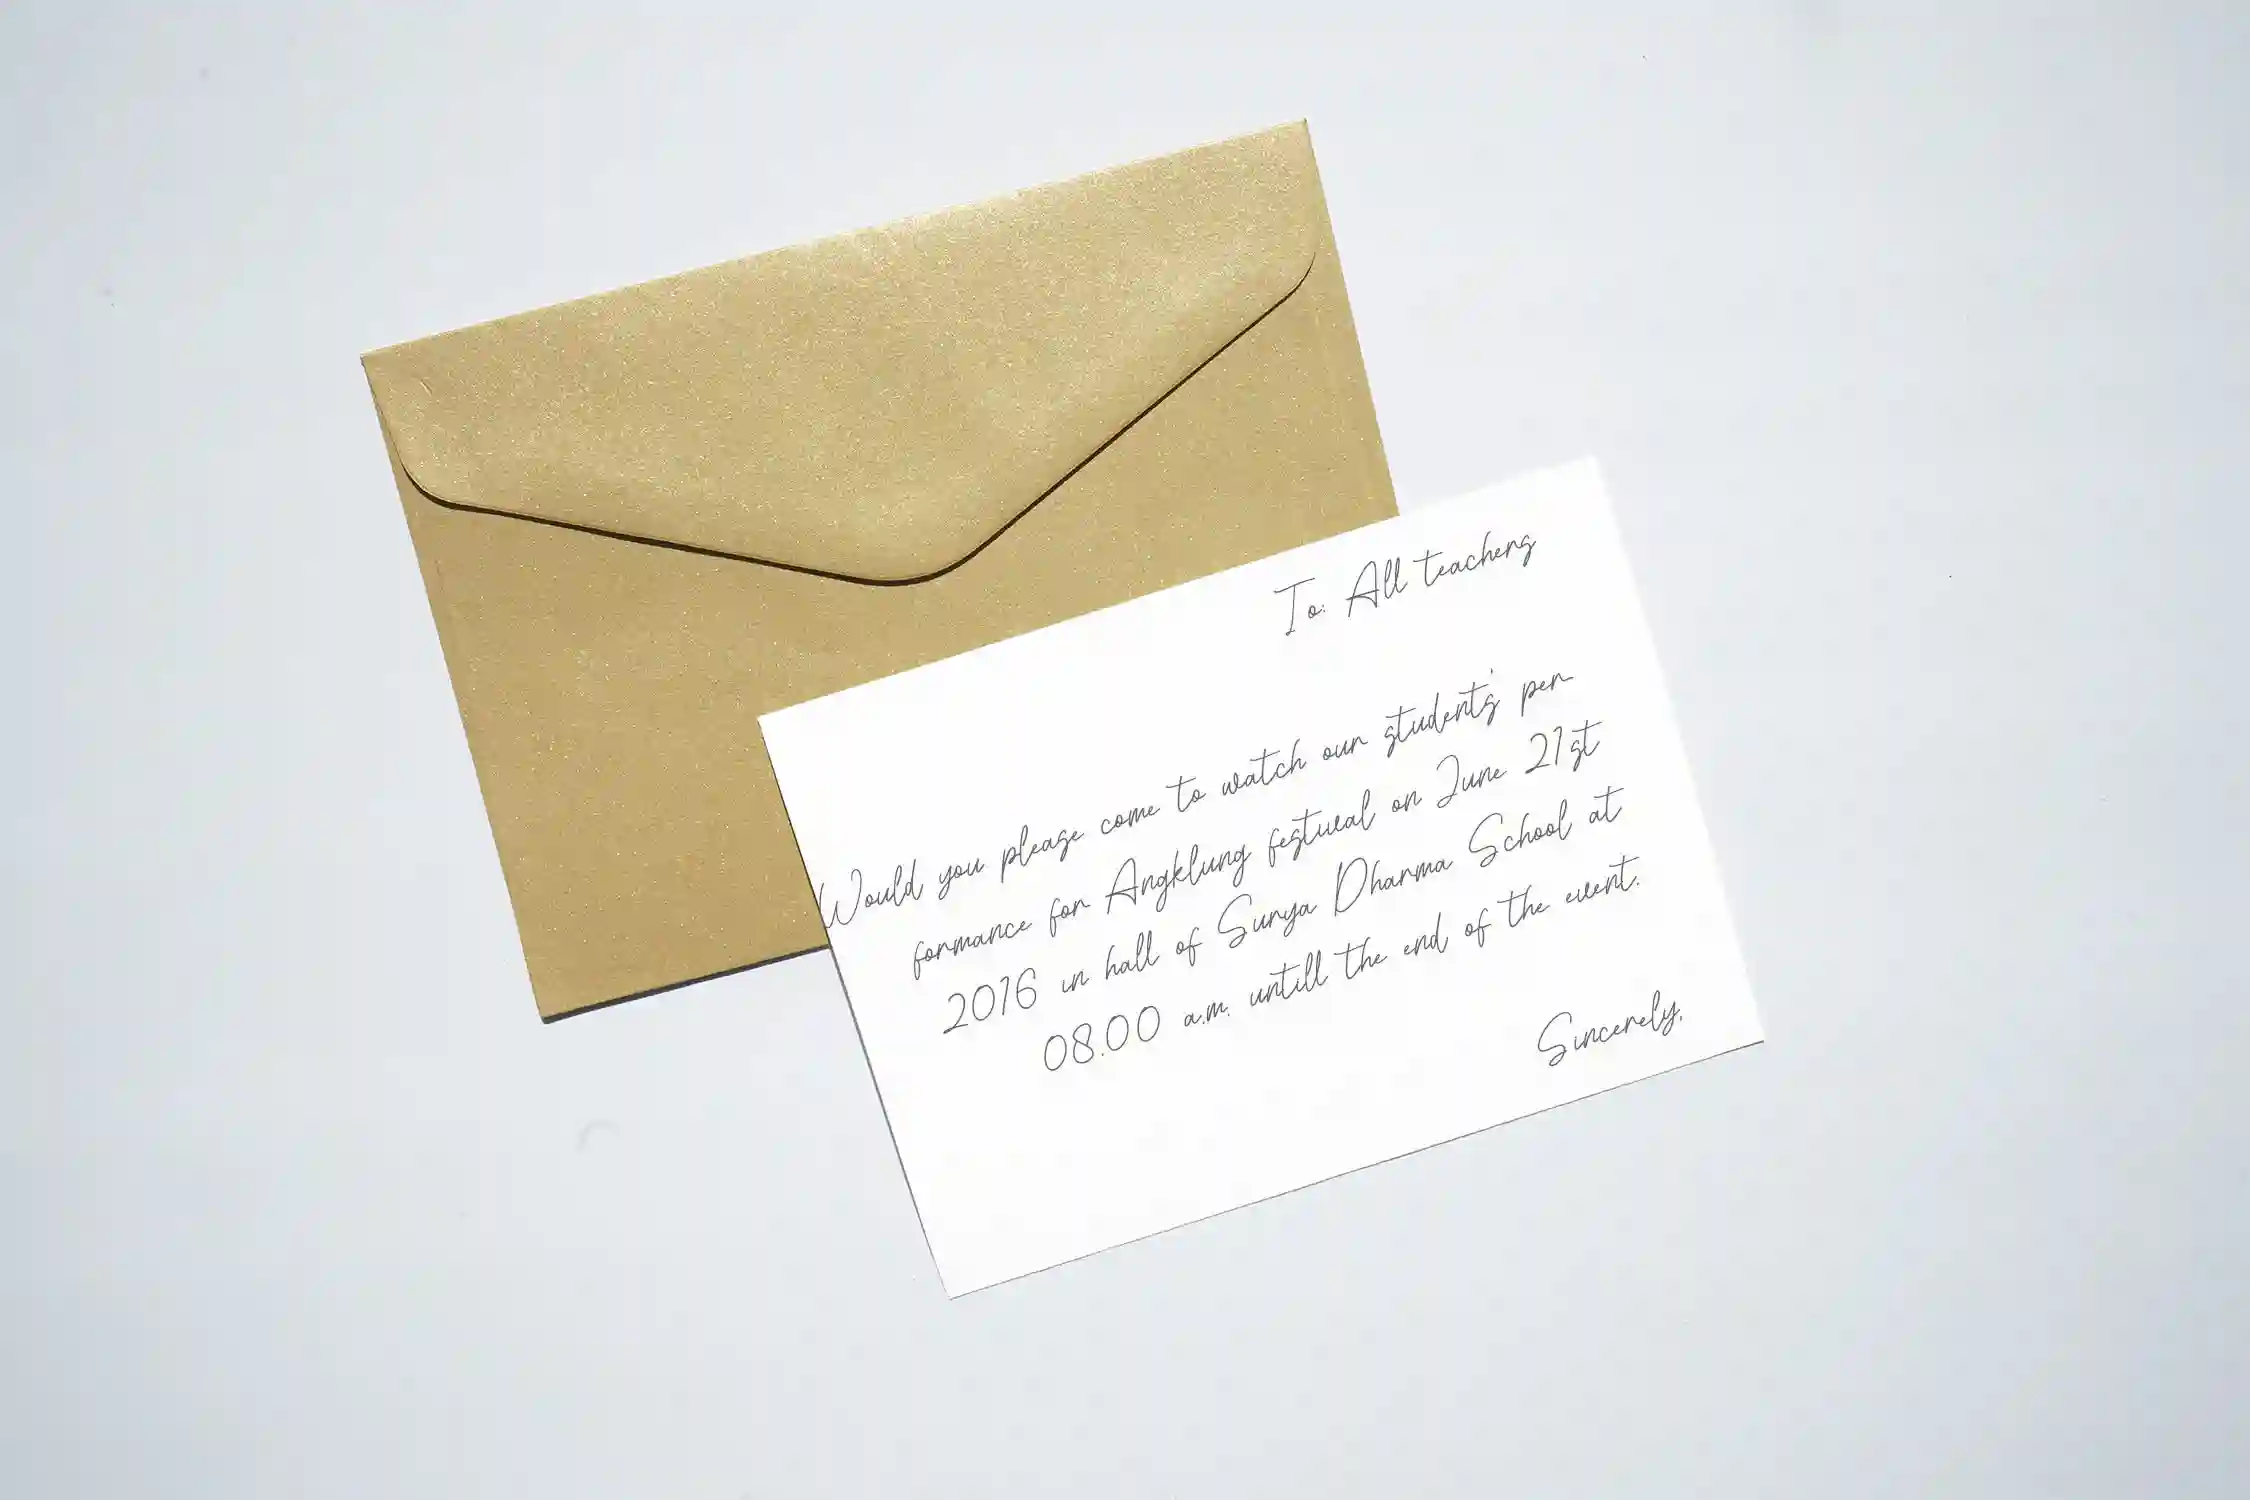 To: All teachers
Would you please come to watch our students' per
formance for Angklung festival on June 21st
2016 in hall of Surya Dharma School at
08.00 a.m. untill the end of the event.
Sincerely,